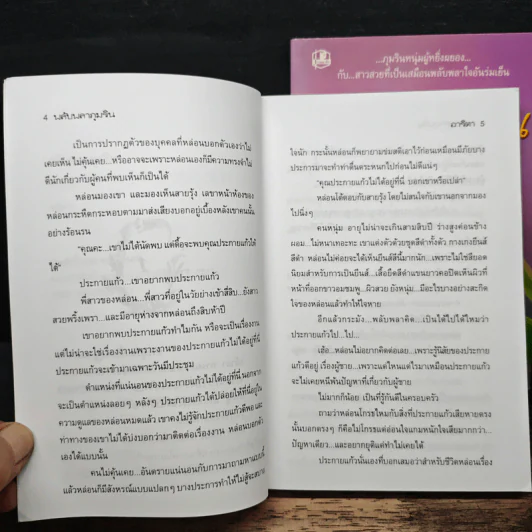 ...ภูมรินหนุ่มผู้หยิ่งผยอง...
กับ...สาวสวยที่เป็นเสมือนพลับพลาใจอันร่มเย็น
4 พลับพลาภุมริน
เป็นการปรากฏตัวของบุคคลที่หล่อนบอกตัวเองว่าไม่
เคยเห็น ไม่คุ้นเคย...หรืออาจจะเพราะหล่อนเองก็มีความทรงจำไม่
ดีนักเกี่ยวกับผู้คนที่พบเห็นก็เป็นได้
หล่อนมองเขา และมองเห็นสายรุ้ง เลขาหน้าห้องของ
หล่อนกระหืดกระหอบตามมาส่งเสียงบอกอยู่เบื้องหลังเขาคนนั้น
อย่างร้อนรน
"คุณคะ...เขาไม่ได้นัดพบ แต่ดื้อจะพบคุณประกายแก้วให้
ได้"
ประกายแก้ว...เขาอยากพบประกายแก้ว
พี่สาวของหล่อน...พี่สาวที่อยู่ในวัยย่างเข้าสี่สิบ...ยังสาว
สวยพริ้งเพรา...และมีอายุห่างจากหล่อนถึงสิบห้าปี
เขาอยากพบประกายแก้วทำไมกัน หรือจะเป็นเรื่องงาน
แต่ไม่น่าจะใช่เรื่องงานเพราะงานของประกายแก้วไม่ได้อยู่ที่นี่
ประกายแก้วจะเข้ามาเฉพาะวันมีประชุม
ตำแหน่งที่แน่นอนของประกายแก้วไม่ได้อยู่ที่นี่ นอกจาก
จะเป็นตำแหน่งลอยๆ หลังๆ ประกายแก้วได้ปล่อยให้ที่นี่อยู่ใน
ความดูแลของหล่อนหมดแล้ว เขาคงไม่รู้จักประกายแก้วดีพอ และ
ท่าทางของเขาไม่ได้บ่งบอกว่ามาติดต่อเรื่องงาน หล่อนบอกตัว
เองได้แบบนั้น
คนไม่คุ้นเคย...อันตรายแน่นอนกับการมาถามหาแบบนี้
แล้วหล่อนก็มีสังหรณ์แบบแปลกๆ บางประการทำให้ไม่สู้จะสบาย
อาริตา 5
ใจนัก กระนั้นหล่อนก็พยายามข่มสติเอาไว้ก่อนเหมือนมีภัยบาง
ประการมาจะทำท่าตื่นตระหนกไปก่อนไม่ดีแน่ๆ
"คุณประกายแก้วไม่ได้อยู่ที่นี่ บอกเขาหรือเปล่า"
หล่อนโต้ตอบกับสายรุ้ง โดยไม่สนใจกับเขานอกจากมอง
ไปนิ่งๆ
คนหนุ่ม อายุไม่น่าจะเกินสามสิบปี ร่างสูงค่อนข้าง
ผอม...ไม่หนาเทอะทะ เขาแต่งตัวด้วยชุดสีดำทั้งตัว กางเกงยีนส์
สีดำ หล่อนไม่ค่อยจะได้เห็นยีนส์สีนี้มากนัก...เพราะไม่ใช่สียอด
นิยมสำหรับการเป็นยีนส์...เสื้อยืดสีดำแขนยาวคอปิดเห็นผิวที่
หน้าที่ออกขาวอมชมพู...ผิวสวย ยังหนุ่ม...มีอะไรบางอย่างสะกิด
ใจของหล่อนแล้วทำให้ใจหาย
อีกแล้วกระมัง...พลับพลาคิด...เป็นได้ไปได้ไหมว่า
ประกายแก้วไป...ไป...
เฮ้อ...หล่อนไม่อยากคิดต่อเลย...เพราะรู้นิสัยของประกาย
แก้วดีอยู่ เรื่องผู้ชาย...เพราะแต่ไหนแต่ไรมาเหมือนประกายแก้ว
จะไม่เคยหนีพ้นปัญหาที่เกี่ยวกับผู้ชาย
ไม่มากก็น้อย เป็นที่รู้กันดีในครอบครัว
ถามว่าหล่อนโกรธไหมกับสิ่งที่ประกายแก้วเสียหายตรง
นั้นบอกตรงๆ ก็คือไม่โกรธแต่อ่อนใจแกมหนักใจเสียมากกว่า...
ปัญหาเดียว...และอยากยุติแต่ทำไม่เคยได้
ประกายแก้วนั่นเองที่บอกเสมอว่าสำหรับชีวิตหล่อนเรื่อง